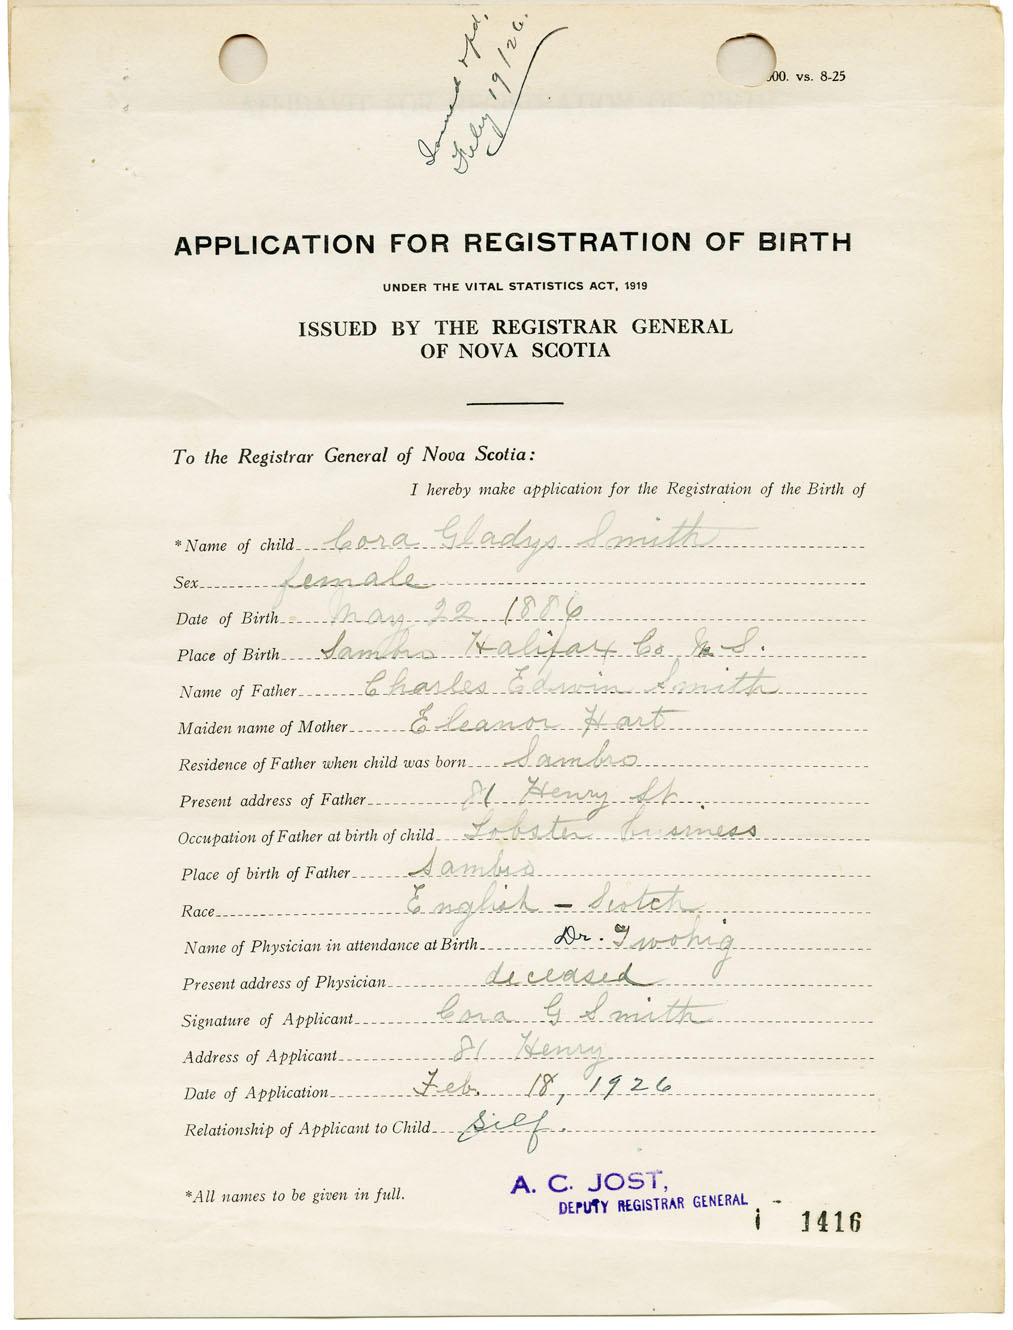 Issued & pd.
Feby 19/26.
000. vs. 8-25
APPLICATION FOR REGISTRATION OF BIRTH
UNDER THE VITAL STATISTICS ACT, 1919
ISSUED BY THE REGISTRAR GENERAL
OF NOVA SCOTIA
To the Registrar General of Nova Scotia:
I hereby make application for the Registration of the Birth of
*Name of child Cora Gladys Smith
Sex female
Date of Birth May 22 1886
Place of Birth Sambro Halifax Co N. S.
Name of Father Charles Edwin Smith
Maiden name of Mother Eleanor Hart
Residence of Father when child was born Sambro
Present address of Father 81 Henry St.
Occupation of Father at birth of child Lobster business
Place of birth of Father Sambro
Race English – Scotch
Name of Physician in attendance at Birth Dr. Twohig
Present address of Physician deceased
Signature of Applicant Cora G Smith
Address of Applicant 81 Henry
Date of Application Feb. 18, 1926
Relationship of Applicant to Child Self.
*All names to be given in full.
A. C. JOST,
DEPUTY REGISTRAR GENERAL
1416